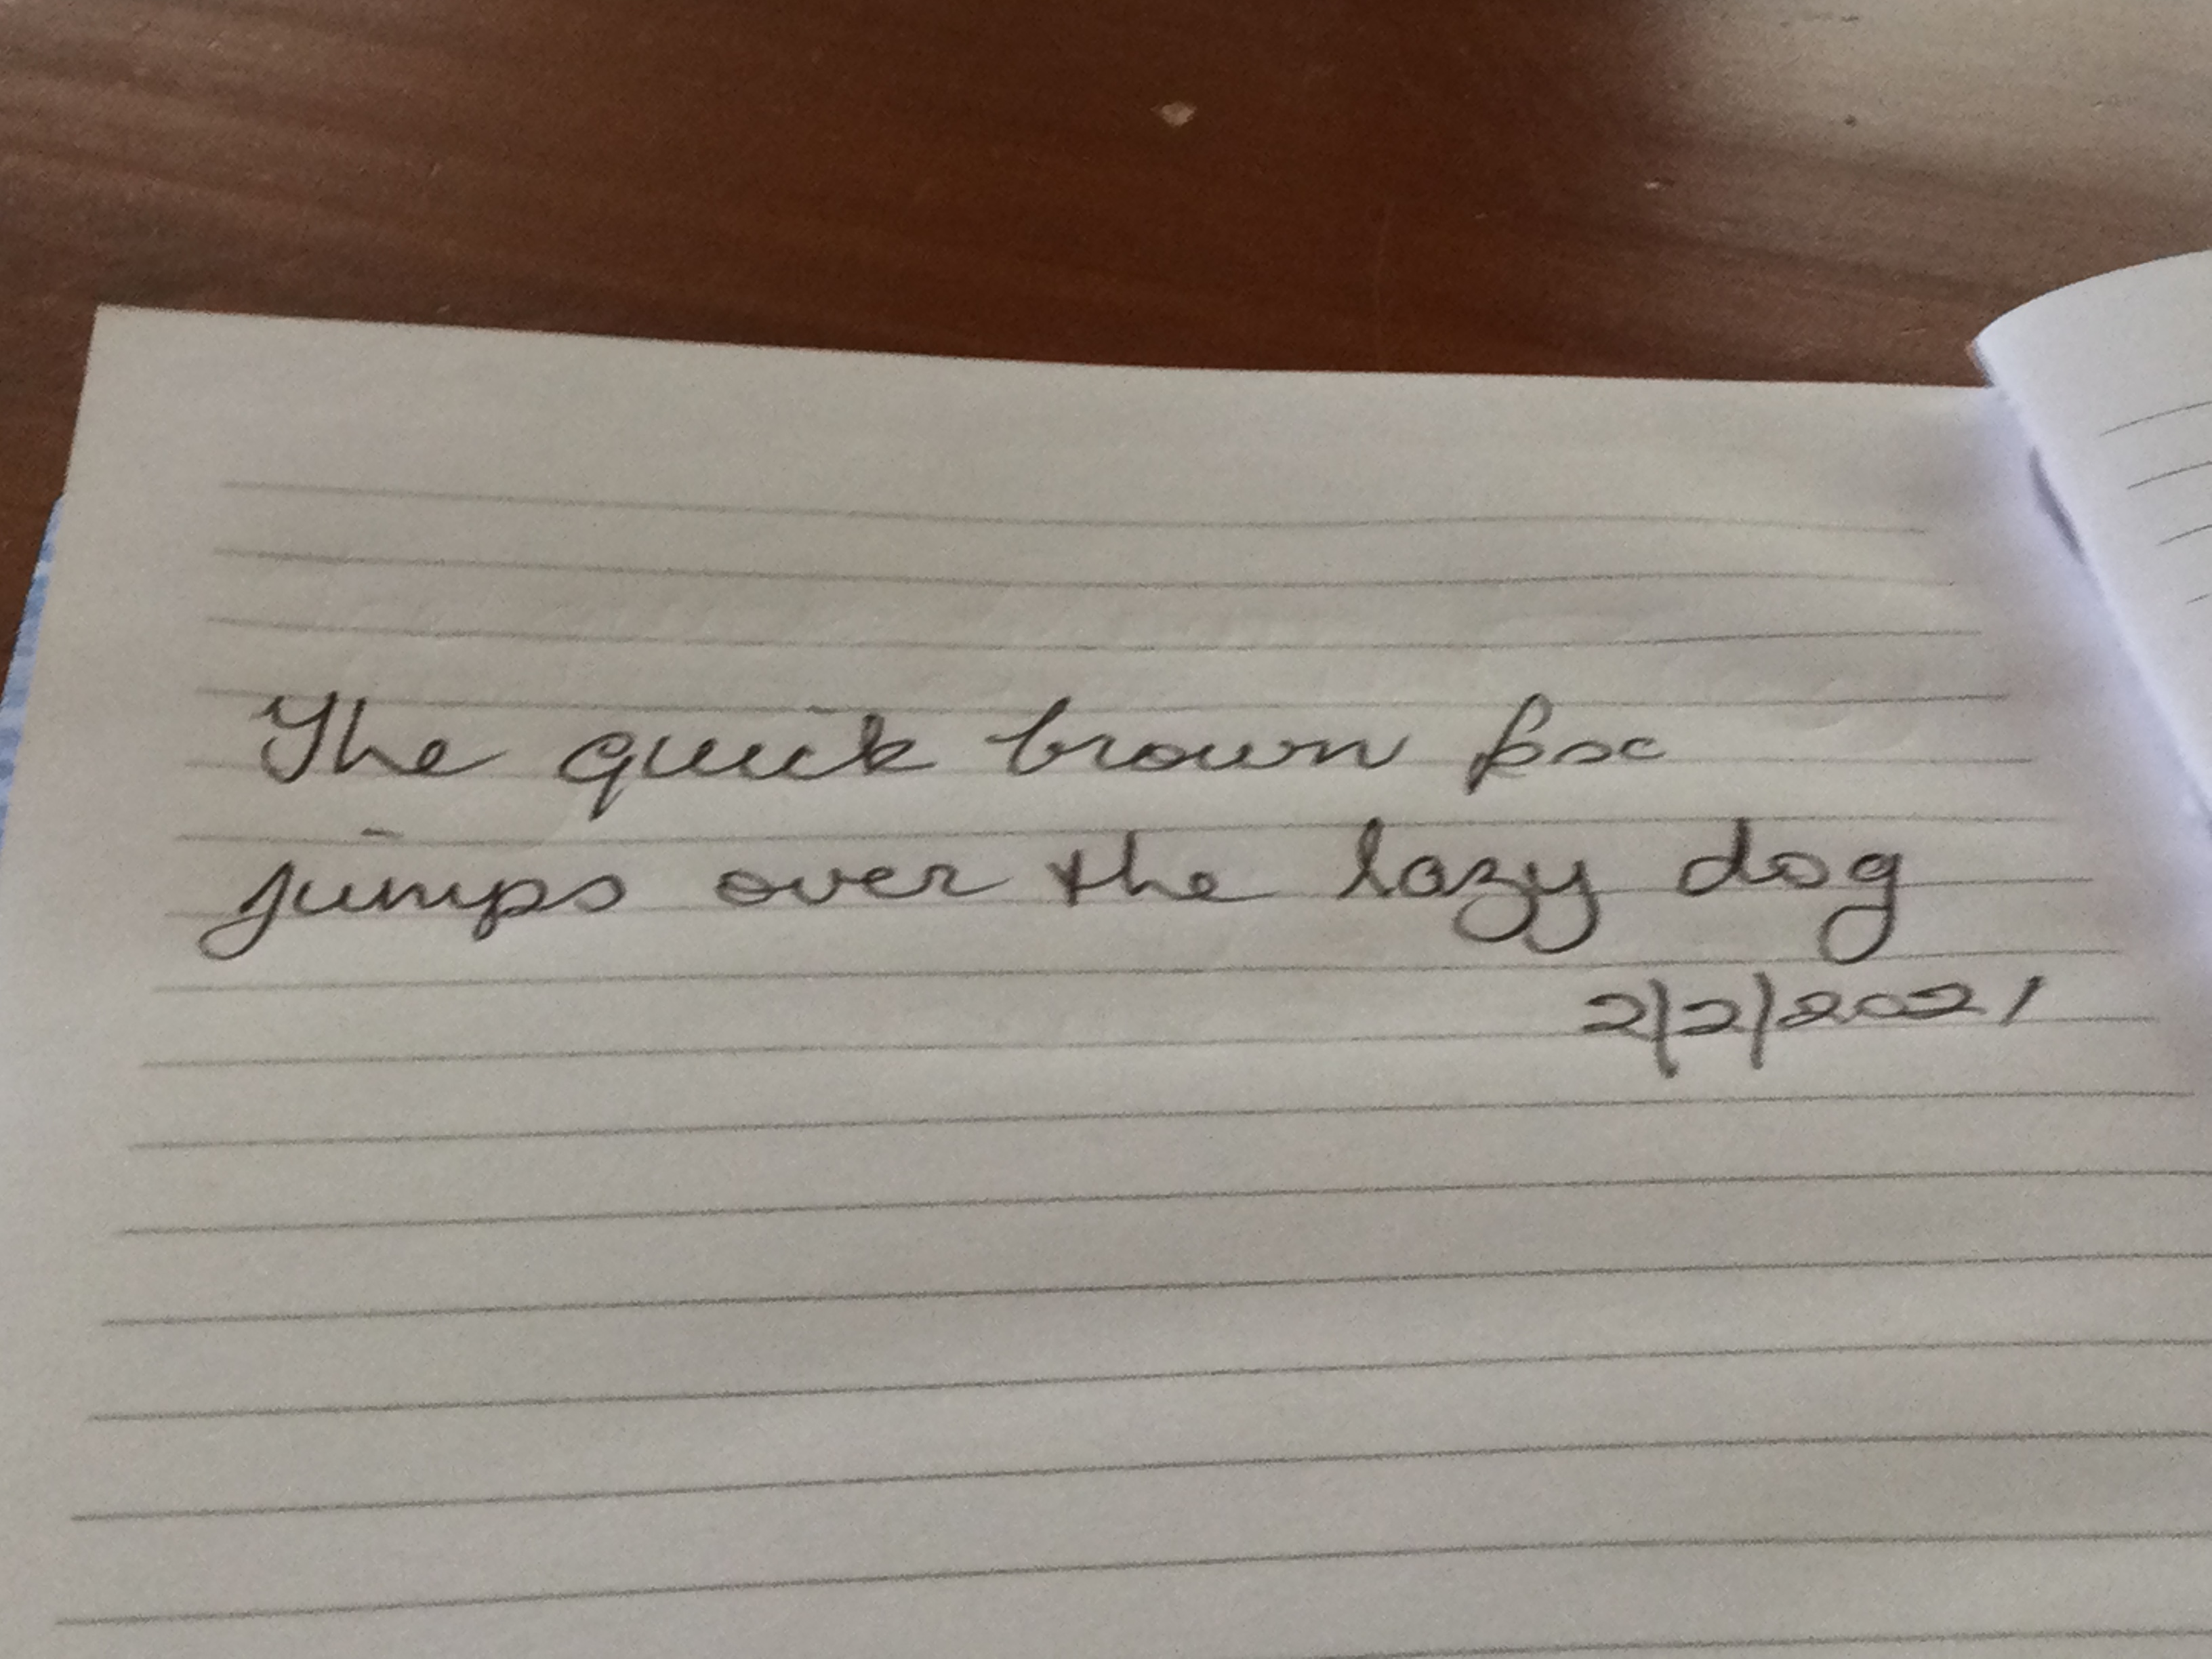 The quick brown fox
jumps over the lazy dog
2/2/2021